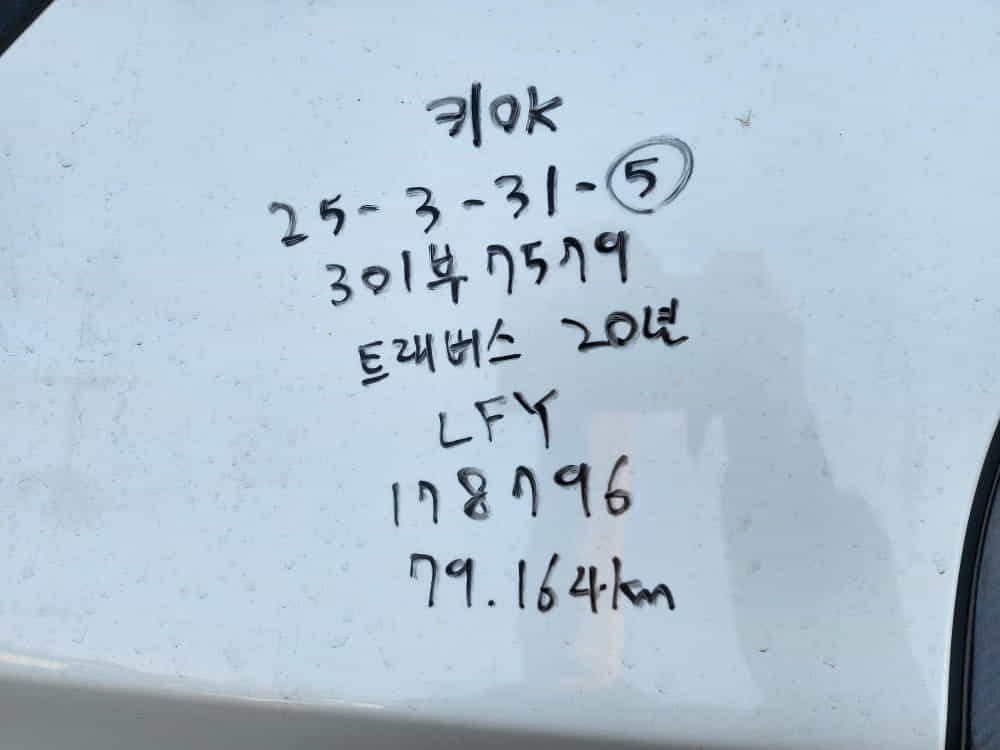 키OK
25-3-31-⑤
301부7579
트래버스 20년
LFY
178796
79.164km